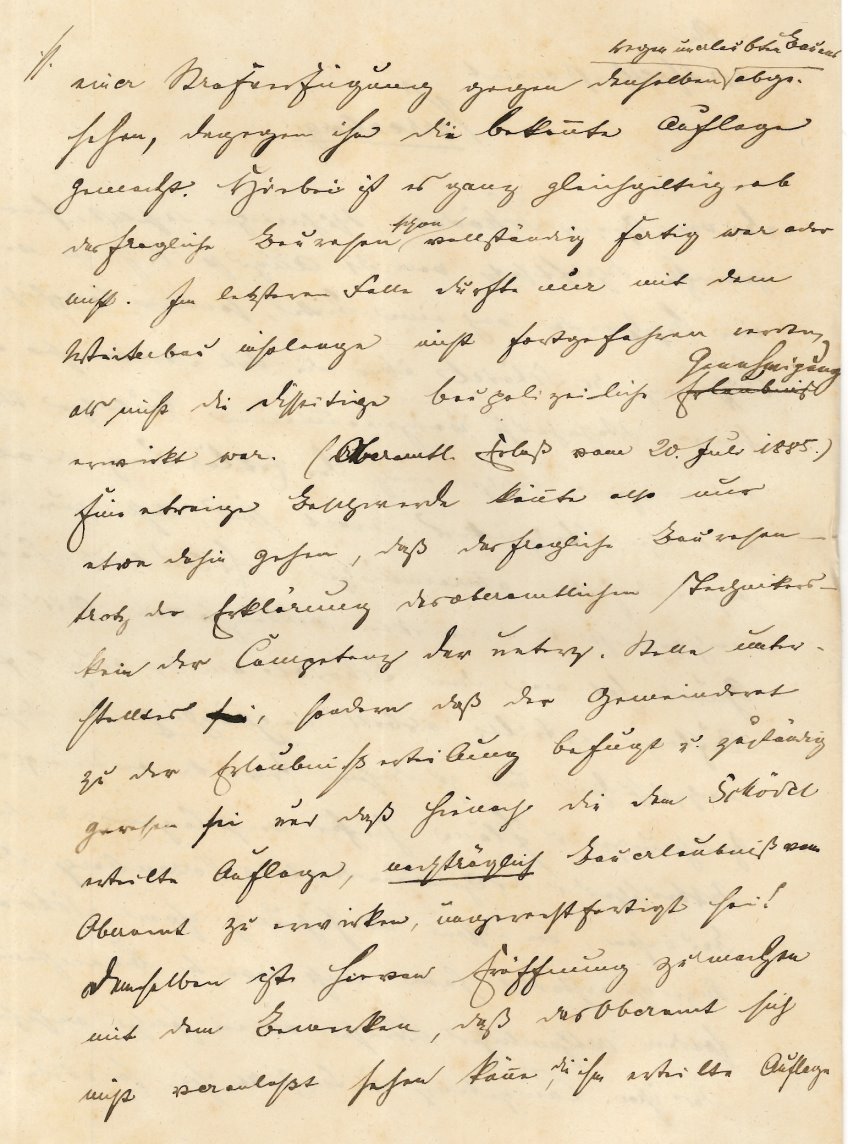 wegen unerlaubten Bauens
einer Strafverfügung gegen denselben abge-
sehen, dagegen ihm die bekannte Auflage
gemacht. Hiebei ist es ganz gleichgiltig, ob
das fragliche Bauwesen schon vollständig fertig war oder
nicht. Im letzteren Falle durfte nur mit dem
Weiterbau insolange nicht fortgefahren werden,
als nicht die disseitige baupolizeiliche Erlaubnis Genehmigung
erwirkt war. (Oberamtl. Erlaß vom 20. Juli 1885.)
Eine etwaige Beschwerde könnte also nur
etwa dahin gehen, daß das fragliche Bauwesen –
trotz der Erklärung des oberamtlichen Technikers –
kein der Competenz der unterz. Stelle unter-
stelltes sei, sondern daß der Gemeinderat
zu der Erlaubnißerteilung befugt u. zuständig
gewesen sei und daß hienach die dem Schödel
erteilte Auflage, nachträglich Bauerlaubniß vom
Oberamt zu erwirken, ungerechtfertigt sei!
Demselben ist hievon Eröffnung zu machen
mit dem Bemerken, daß das Oberamt sich
nicht veranlaßt sehen könne, die ihm erteilte Auflage